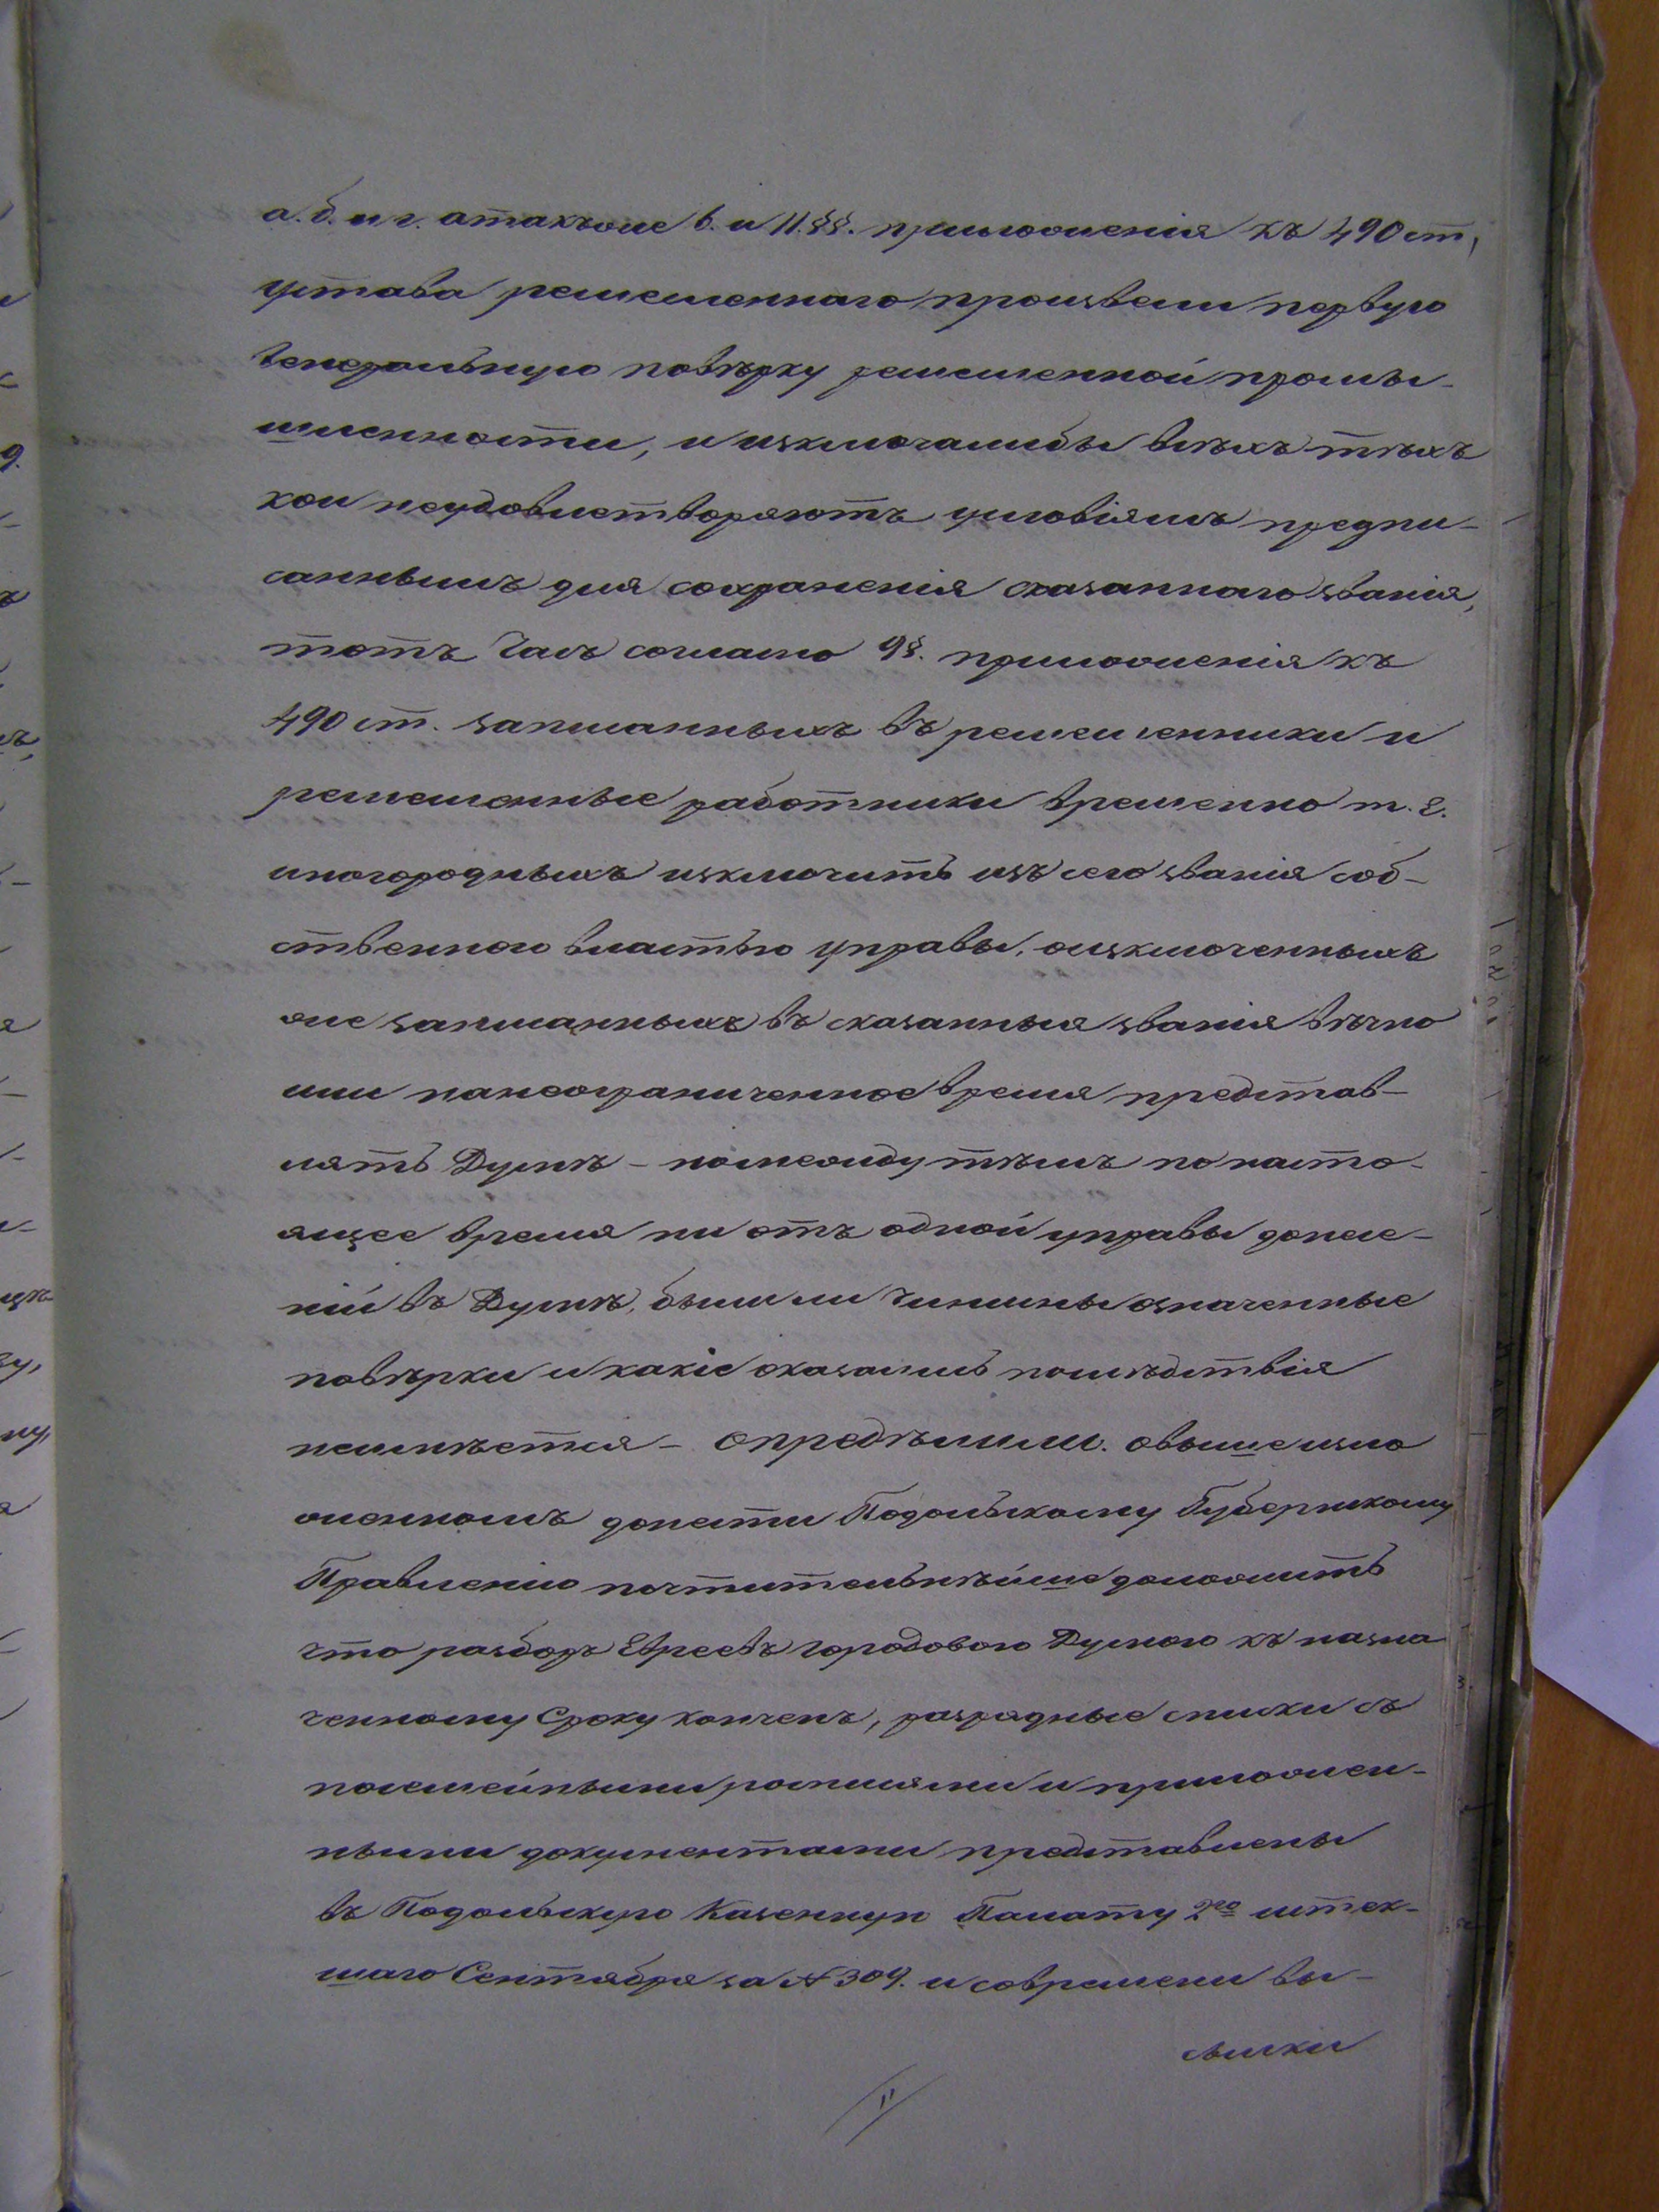 а. б. и г. атакъже 6. и 11. §§. приложенія къ 490 ст,
устава ремесленнаго произвели первую
генеральную повѣрку ремесленной промы-
шленности, и изключалибы всѣхъ тѣхъ
кои неудовлетворяютъ условіямъ предпи-
саннымъ для сохраненія сказаннаго званія,
тотъ Часъ согласно 9 §. приложенія къ
490 ст. записанныхъ въ ремесленники и
ремесленные работники временно т. е.
иногородныхъ изключить изъ сего званія соб-
ственною властью управы, оизключенныхъ
же записанныхъ въ сказанныя званія вѣчно
или нанеограниченное время представ-
лять Думѣ -номежду тѣмъ по насто-
ящее время ни отъ одной управы донесе-
ній въ Думѣ, былили чинимы означенные
повѣрки и какіе оказались послѣдствія
неимѣется - опредѣлили. овыше изло
женномъ донести Подольскому Губернскому
Правленію почтительнѣйше доложить
что разборъ Евреевъ городовою Думою къ назна
ченному сроку конченъ, разрядные списки съ
посемейными росписями и приложен-
ными документами представлены
въ Подольскую Казенную Палату 2го истек-
шаго Сентября за № 309. и современи вы-
сылки